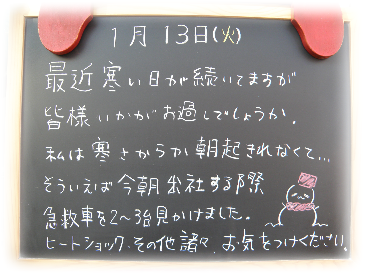 1月13日(火)
最近寒い日が続いてますが
皆様いかがお過しでしょうか.
私は寒さからか朝起きれなくて...
そういえば今朝出社する際
急救車を2~3台見かけました.
ヒートショック、その他諸々、お気をつけください。